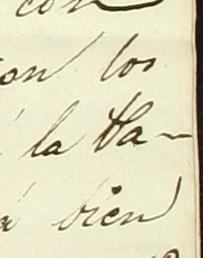 con
on los
la Ha-
á bien